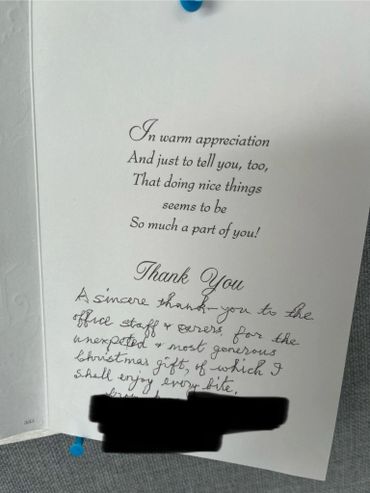 In warm appreciation
And just to tell you, too,
That doing nice things
seems to be
So much a part of you!
Thank You
A sincere thank-you to the
office staff & carers, for the
unexpected & most generous
Christmas gift, of which I
shall enjoy every bite.